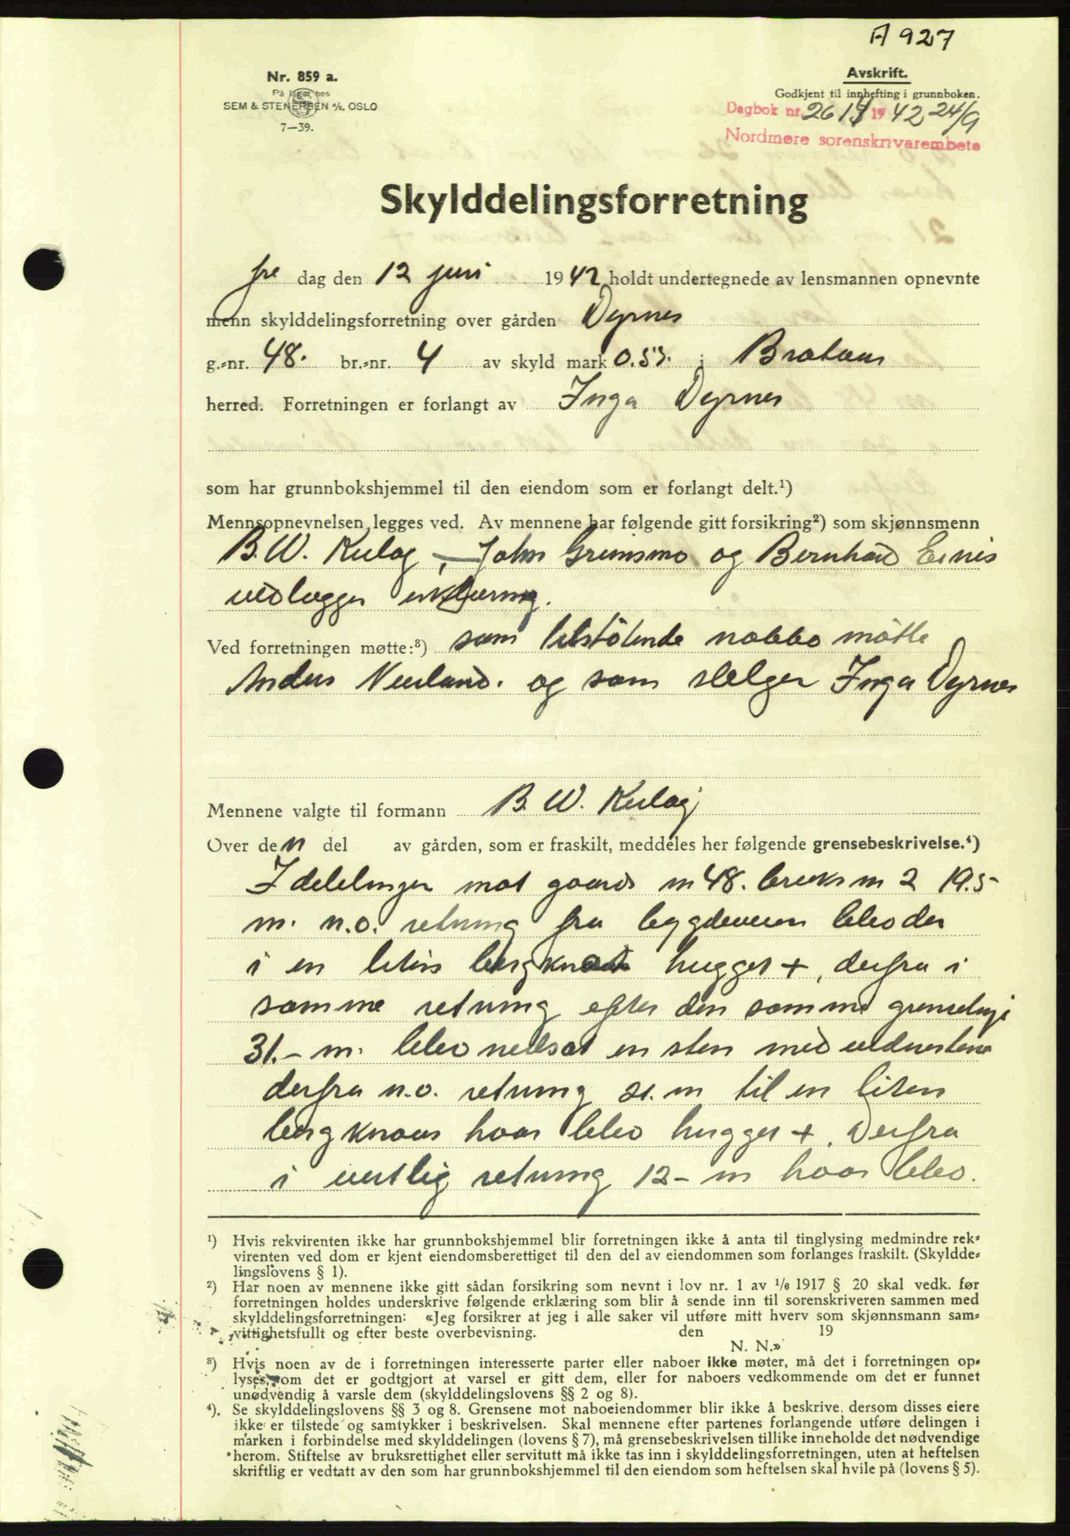 A 927
Nr. 859 a.
På lager hos
SEM & STENERSEN A/S, OSLO
7—39.
Avskrift.
Godkjent til innhefting i grunnboken.
Dagbok nr. 2619 1942 24/9
Nordmøre sorenskrivarembete
Skylddelingsforretning
fre dag den 12 juni 1942 holdt undertegnede av lensmannen opnevnte
menn skylddelingsforretning over gården Dyrnes
g.-nr. 48. br.-nr. 4 av skyld mark 0.53. i
herred. Forretningen er forlangt av Inga Dyrnes
som har grunnbokshjemmel til den eiendom som er forlangt delt.¹)
Mennsopnevnelsen legges ved. Av mennene har følgende gitt forsikring²) som skjønnsmenn
B. W. Kulag, John Grimsmo og Bernhard
vedlegges erklæring.
Ved forretningen møtte:³) som tilstötende nabbo møtte
Anders Neerland. og som selger Inga Dyrnes
Mennene valgte til formann B. W. Kulag
Over den del av gården, som er fraskilt, meddeles her følgende grensebeskrivelse.⁴)
I delelinger mot gaards nr 48. bruks nr 2 19.5
m. n.o. retning fra bygdeveien blev der
i en liten bergknaus hugget +, derfra i
samme retning efter den samme grenselinje
31.- m. blev nedsat en sten med vidnestene
derfra n.o. retning 21. m til en liten
bergknaus hvor blev hugget +. Derfra
i vestlig retning 12- m hvor blev.
¹) Hvis rekvirenten ikke har grunnbokshjemmel blir forretningen ikke å anta til tinglysing medmindre rek-
virenten ved dom er kjent eiendomsberettiget til den del av eiendommen som forlanges fraskilt. (Skyldde-
lingslovens § 1).
²) Har noen av mennene ikke gitt sådan forsikring som nevnt i lov nr. 1 av 1/6 1917 § 20 skal vedk. før
forretningen holdes underskrive følgende erklæring som blir å sende inn til sorenskriveren sammen med
skylddelingsforretningen: «Jeg forsikrer at jeg i alle saker vil utføre mitt hverv som skjønnsmann sam-
vittighetsfullt og efter beste overbevisning. den 19
N. N.»
³) Hvis noen av de i forretningen interesserte parter eller naboer ikke møter, må det i forretningen op-
lyses om det er godtgjort at varsel er gitt dem, eller for naboers vedkommende om det er funnet
unødvendig å varsle dem (skylddelingslovens §§ 2 og 8).
⁴). Se skylddelingslovens §§ 3 og 8. Grensene mot naboeiendommer blir ikke å beskrive, dersom disses eiere
ikke er tilstede og samtykker i beskrivelsen. Skal mennene efter partenes forlangende utføre delingen i
marken i forbindelse med skylddelingen (lovens § 7), må grensebeskrivelsen tillike inneholde det nødvendige
herom. Stiftelse av bruksrettighet eller servitutt må ikke tas inn i skylddelingsforretningen, uten at heftelsen
skriftlig er vedtatt av den som har grunnbokshjemmel til den eiendom som heftelsen skal hvile på (lovens § 5).